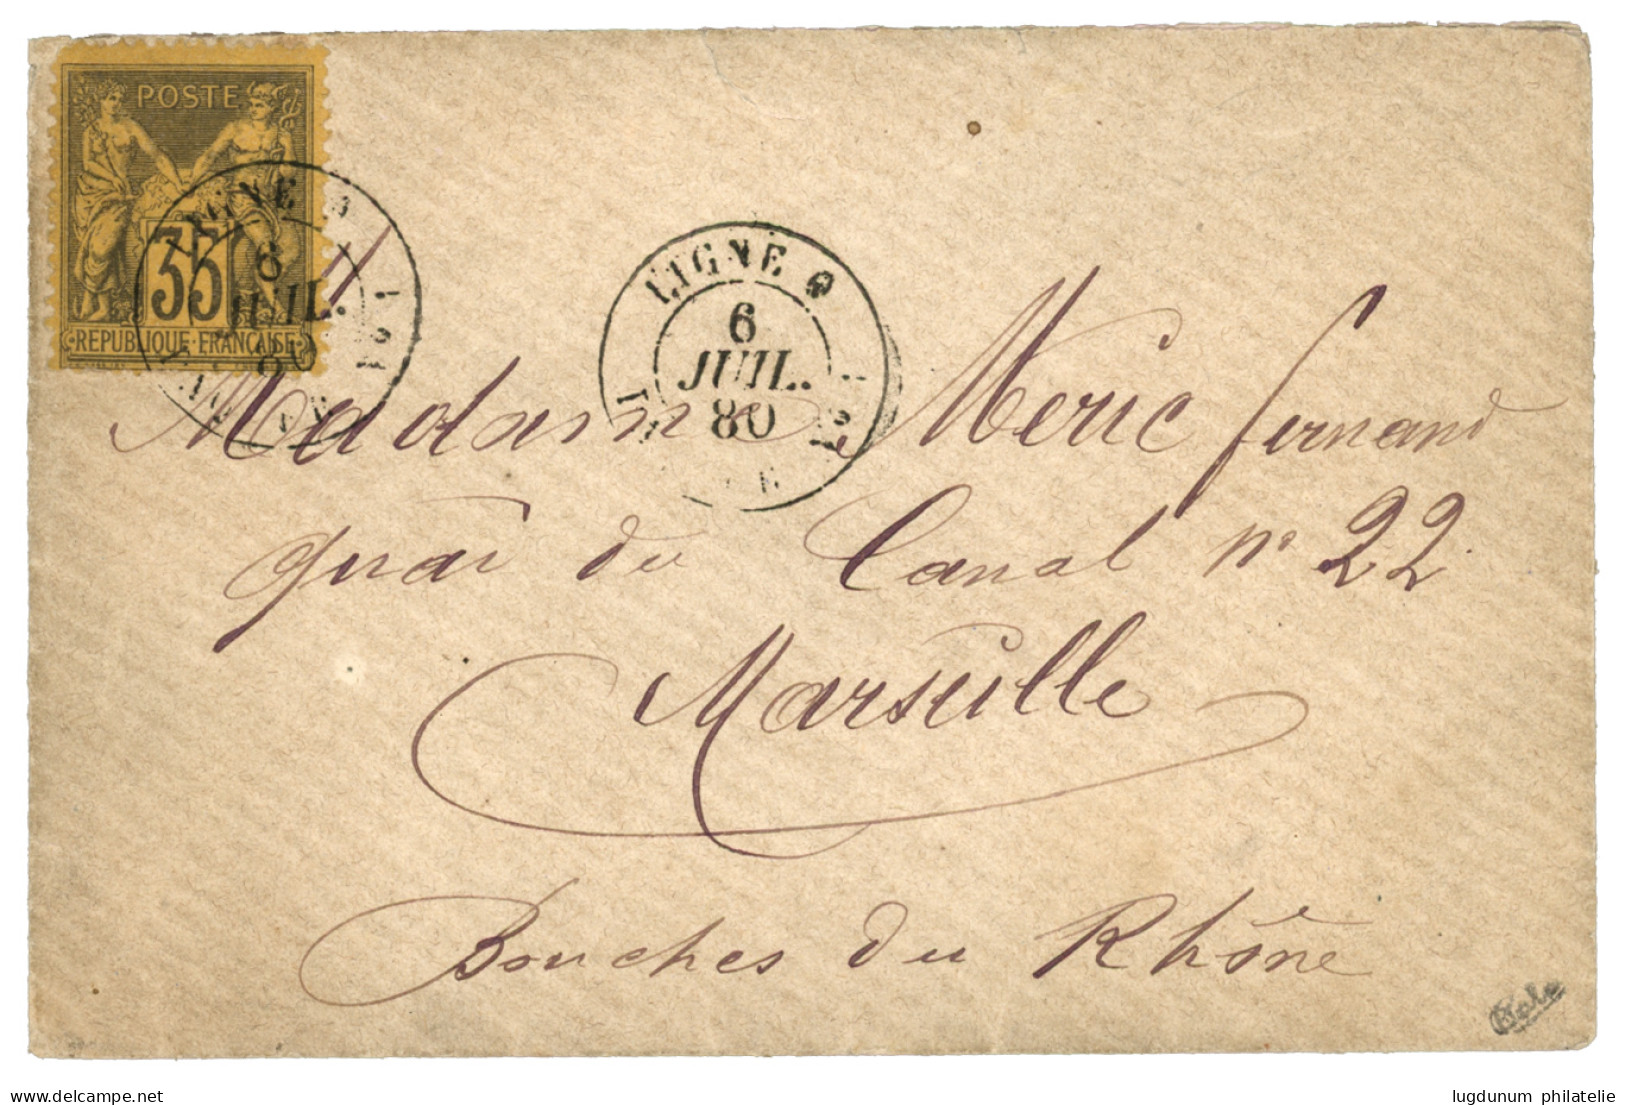 POSTE
35
REPUBLIQUE FRANÇAISE
LIGNE
6
JUIL.
80
LIGNE Q
6
JUIL.
80
Madame Meric fernand
quai du Canal n° 22
Marseille
Bouches du Rhône
delcampe.net
lugdunum philatelie